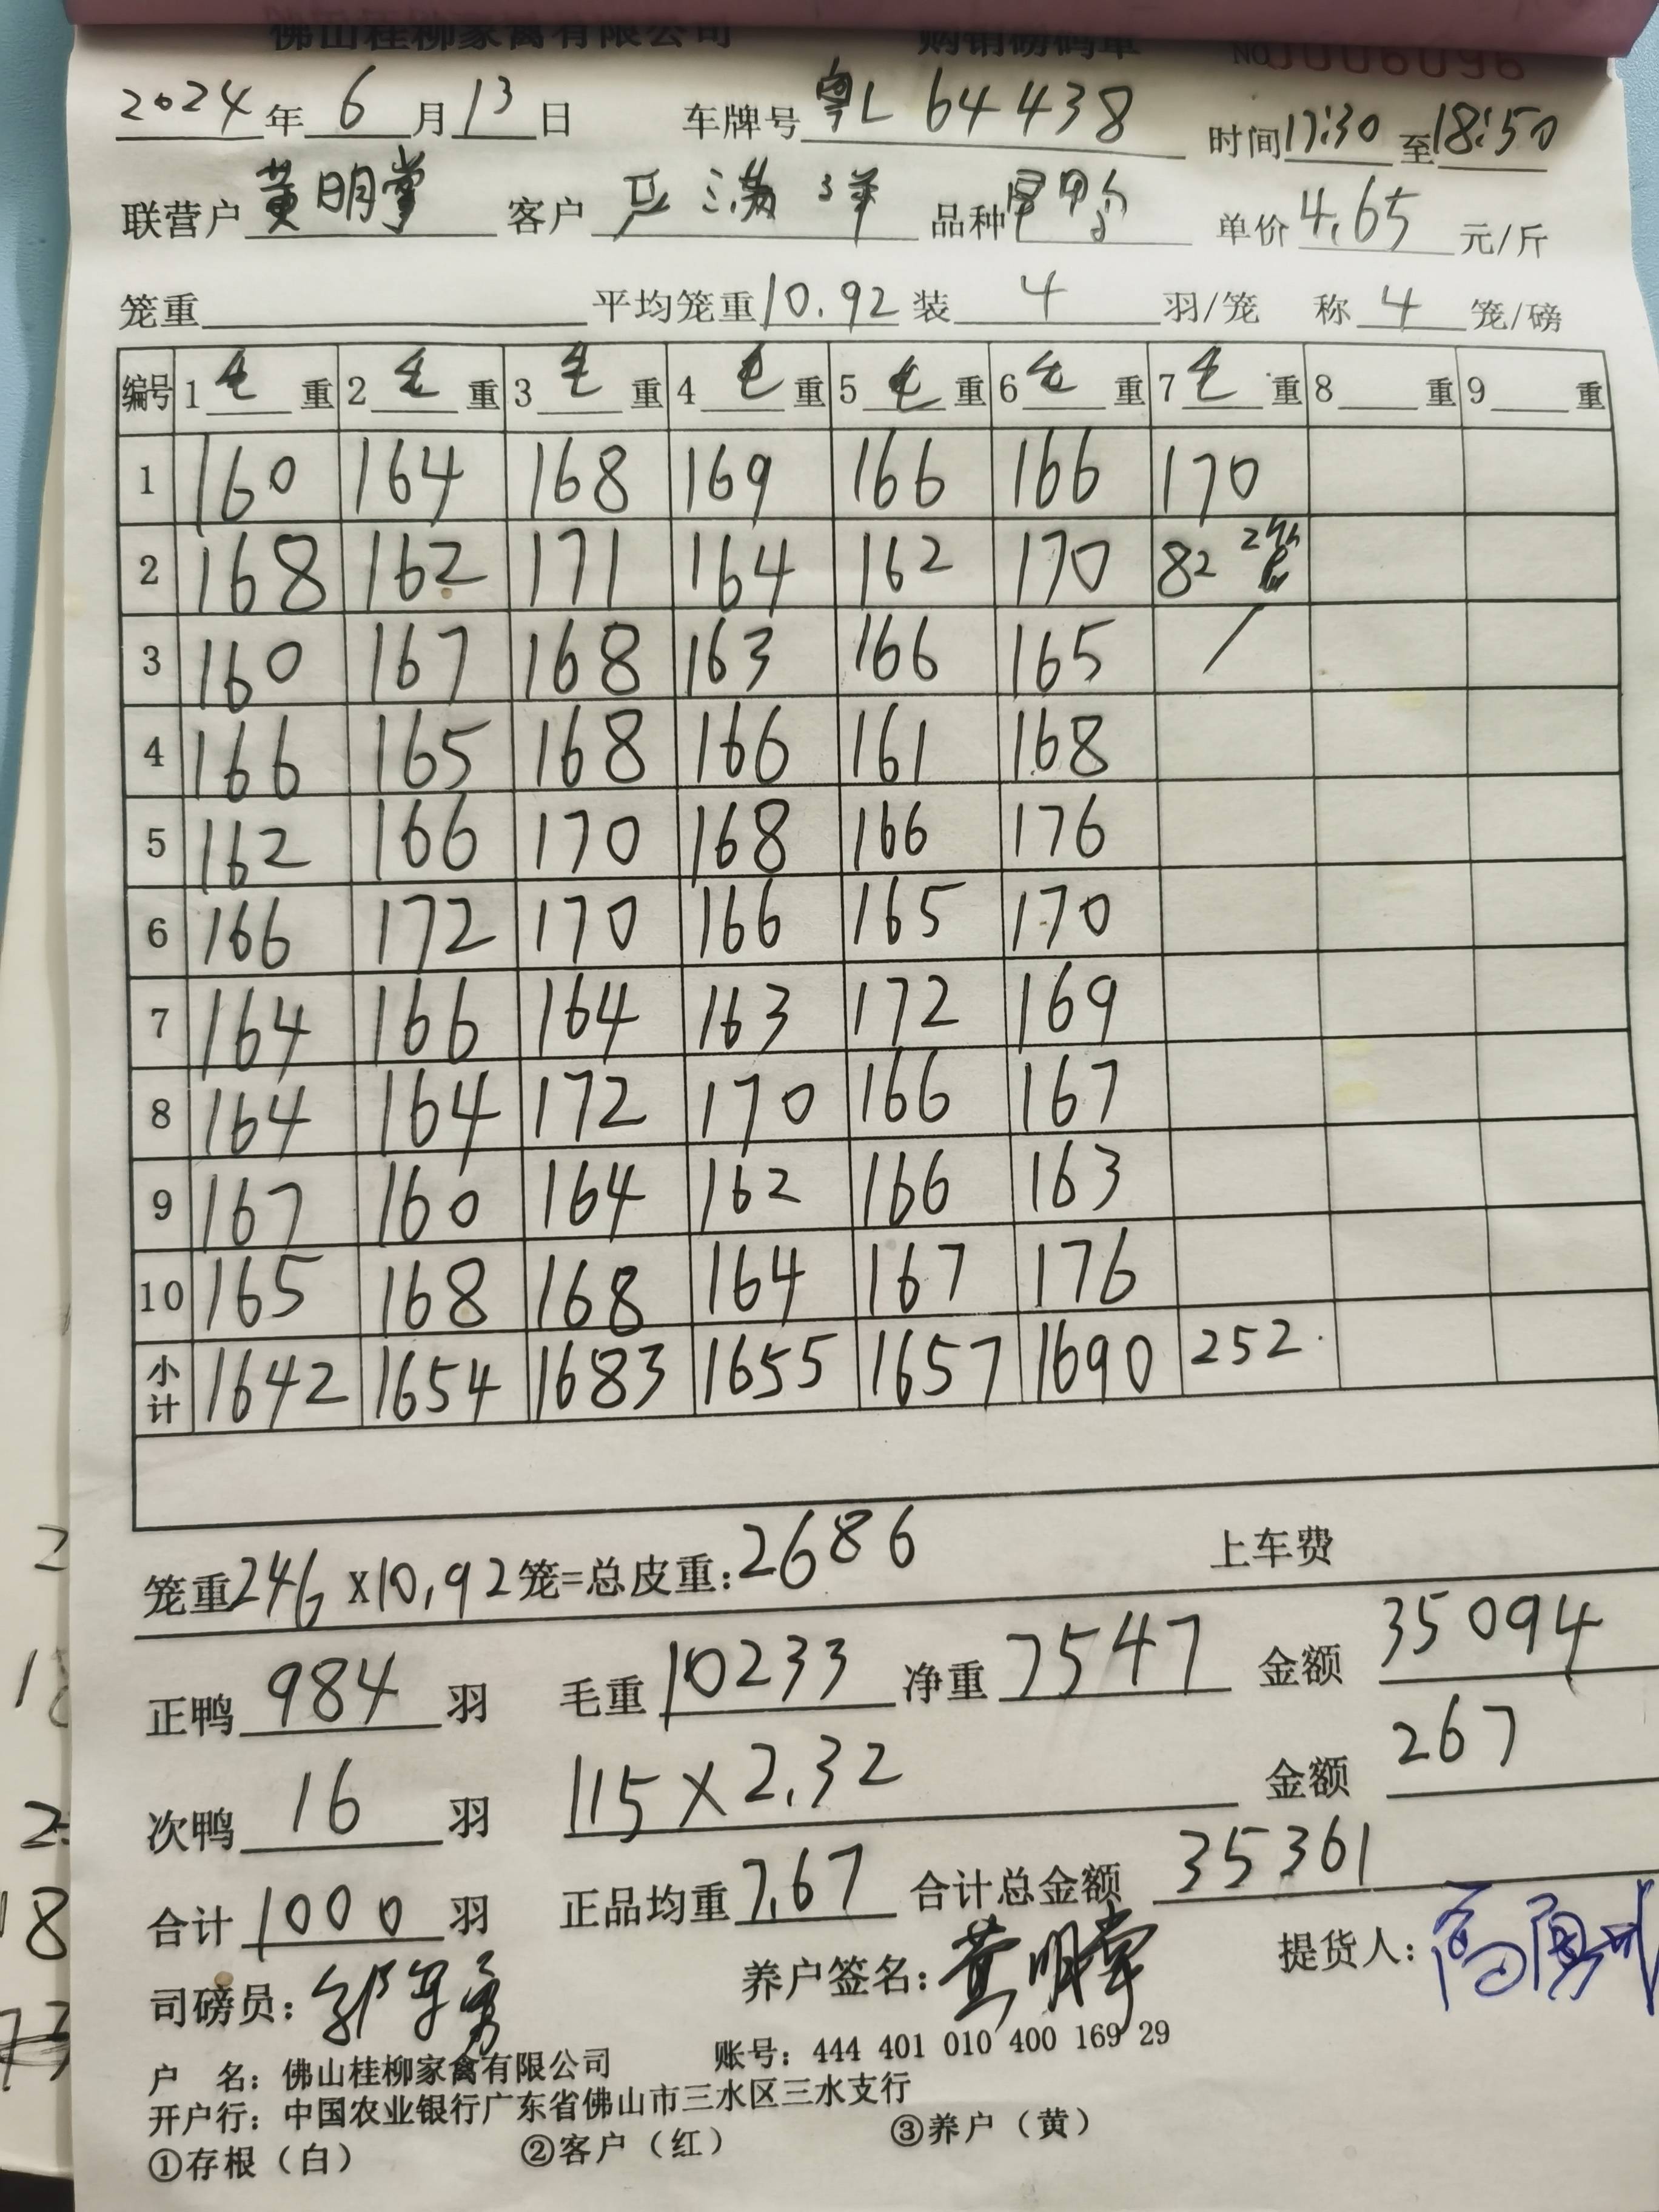 佛山桂柳家禽有限公司 购销磅码单 No 0006096
2024年6月13日 车牌号 粤L 64438 时间 17:30 至 18:50
联营户 黄明掌 客户 满 品种 单价 4.65 元/斤
笼重 平均笼重 10.92 装 4 羽/笼 称 4 笼/磅
编号 1 毛 重 2 毛 重 3 毛 重 4 毛 重 5 毛 重 6 毛 重 7 毛 重 8 重 9 重
1 160 164 168 169 166 166 170
2 168 162 171 164 162 170 82 2
3 160 167 168 163 166 165 /
4 166 165 168 166 161 168
5 162 166 170 168 166 176
6 166 172 170 166 165 170
7 164 166 164 163 172 169
8 164 164 172 170 166 167
9 167 160 164 162 166 163
10 165 168 168 164 167 176
小计 1642 1654 1683 1655 1657 1690 252
笼重 246 x 10.92 笼=总皮重: 2686 上车费
正鸭 984 羽 毛重 10233 净重 7547 金额 35094
次鸭 16 羽 115 × 2.32 金额 267
合计 1000 羽 正品均重 7.67 合计总金额 35361
司磅员: 养户签名: 黄明掌 提货人:
户 名: 佛山桂柳家禽有限公司 账号: 444 401 010 400 169 29
开户行: 中国农业银行广东省佛山市三水区三水支行
①存根（白） ②客户（红） ③养户（黄）